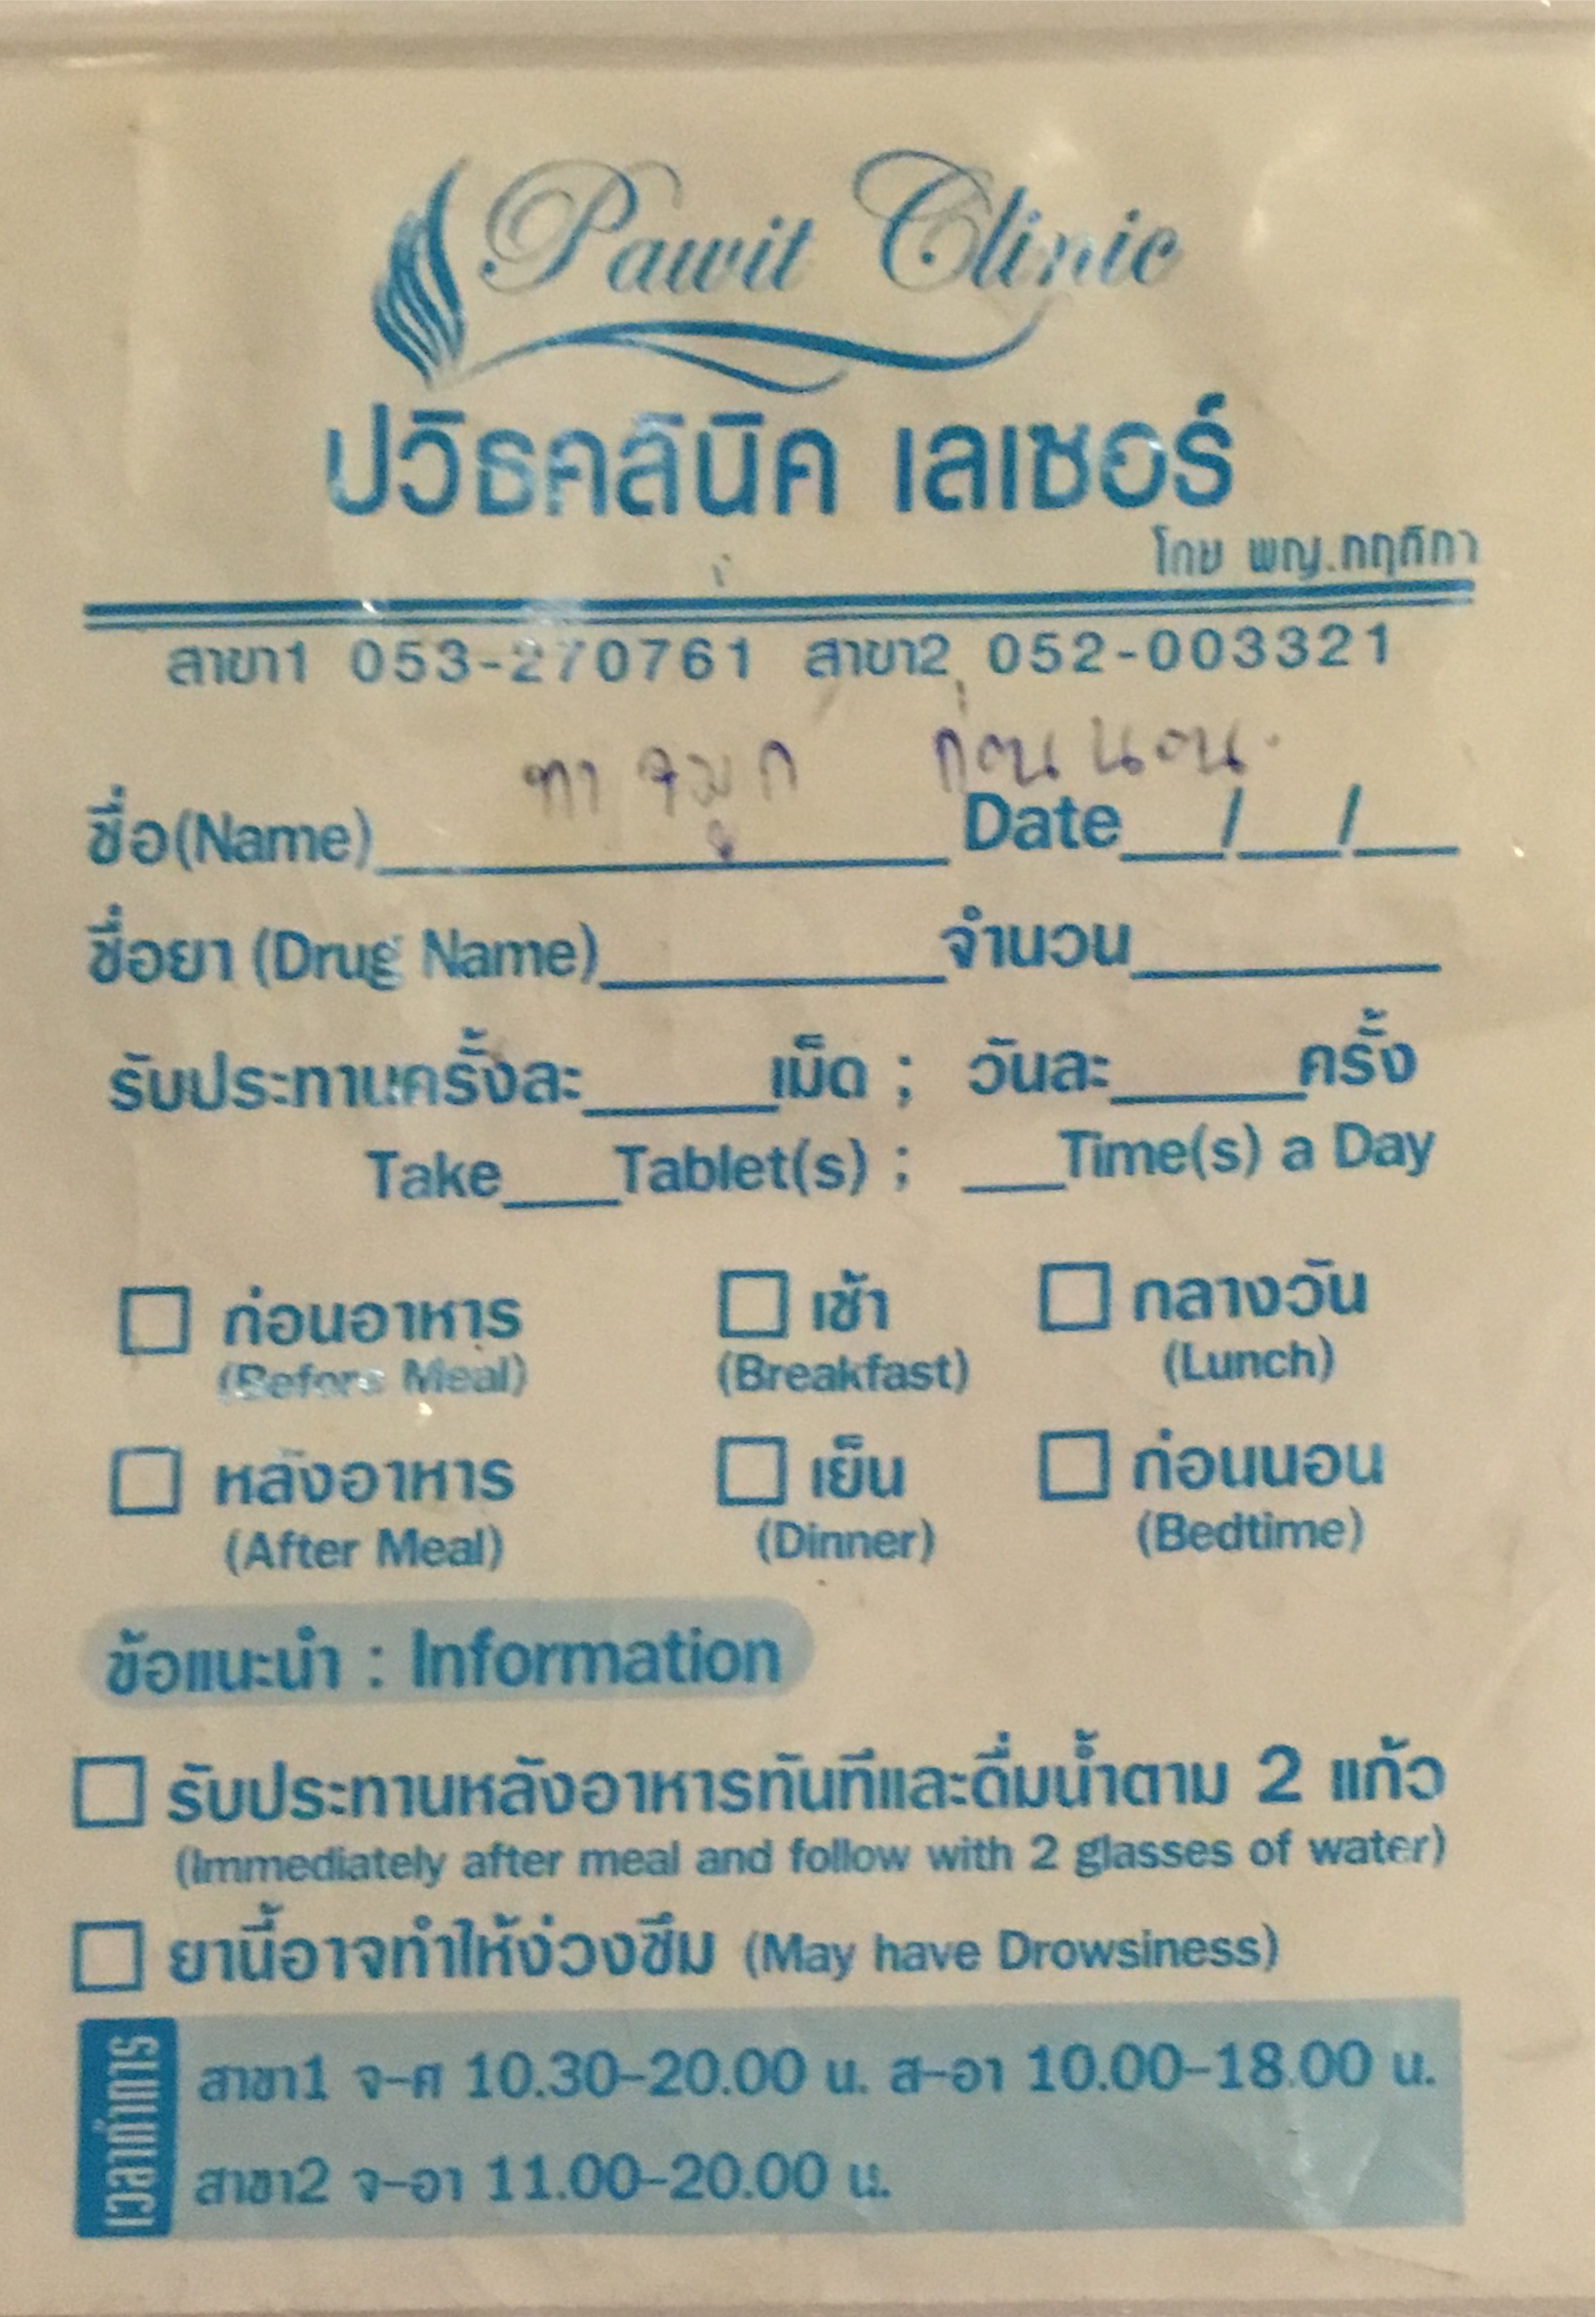 Pawit Clinic
ปวิธคลินิค เลเซอร์
โดย พญ.กฤติกา
สาขา1 053-270761 สาขา2 052-003321
ทา จมูก ก่อนนอน.
ชื่อ(Name)____________ Date___/___/___
ชื่อยา (Drug Name)__________จำนวน_________
รับประทานครั้งละ______เม็ด ; วันละ______ครั้ง
Take____Tablet(s) ; ___Time(s) a Day
ก่อนอาหาร เช้า กลางวัน
(Before Meal) (Breakfast) (Lunch)
หลังอาหาร เย็น ก่อนนอน
(After Meal) (Dinner) (Bedtime)
ข้อแนะนำ : Information
รับประทานหลังอาหารทันทีและดื่มน้ำตาม 2 แก้ว
(Immediately after meal and follow with 2 glasses of water)
ยานี้อาจทำให้ง่วงซึม (May have Drowsiness)
เวลาทำการ
สาขา1 จ-ศ 10.30-20.00 น. ส-อา 10.00-18.00 น.
สาขา2 จ-อา 11.00-20.00 น.